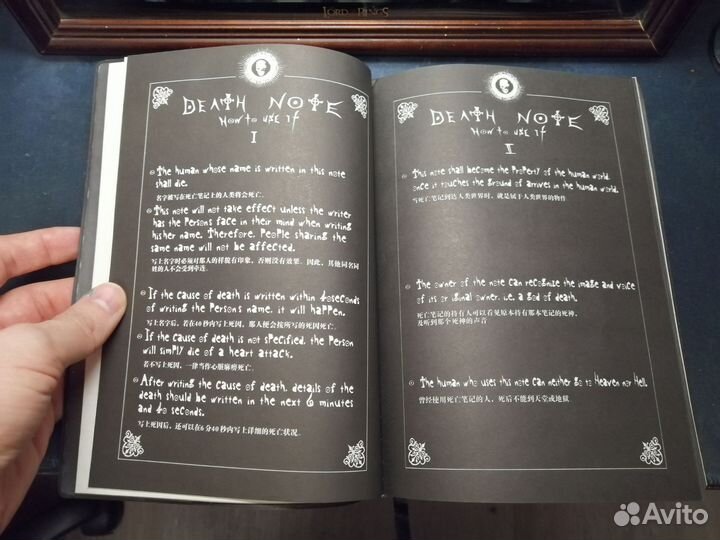 LORD OF THE RINGS
DEATH NOTE
HOW TO USE IT
I
The human whose name is written in this note
shall die.
名字被写在死亡笔记上的人类将会死亡。
This note will not take effect unless the writer
has the persons face in their mind when writing
hisher name. Therefore, people sharing the
same name will not be affected.
写上名字时必须对那人的样貌有印象,否则没有效果。因此,其他同名同
姓的人不会受到牵连。
If the cause of death is written within 40seconds
of writing the persons name, it will happen.
写上名字后,若在40秒内写上死因,那人便会按所写的死因死亡。
If the cause of death is not specified, the person
will simply die of a heart attack.
若不写上死因,一律当作心脏麻痹死亡。
After writing the cause of death, details of the
death should be written in the next 6 minutes
and 40 seconds.
写上死因后,还可以在6分40秒内写上详细的死亡状况。
DEATH NOTE
HOW TO USE IT
II
This note shall become the property of the human world,
once it touches the ground of arrives in the human world.
当死亡笔记到达人类世界时,就是属于人类世界的物件
The owner of the note can recognise the image and voice
of its original owner, i.e. a god of death.
死亡笔记的持有人可以看见原本持有那本笔记的死神,
及听到那个死神的声音
The human who uses this note can neither go to Heaven nor Hell.
曾经使用死亡笔记的人,死后不能到天堂或地狱.
Avito